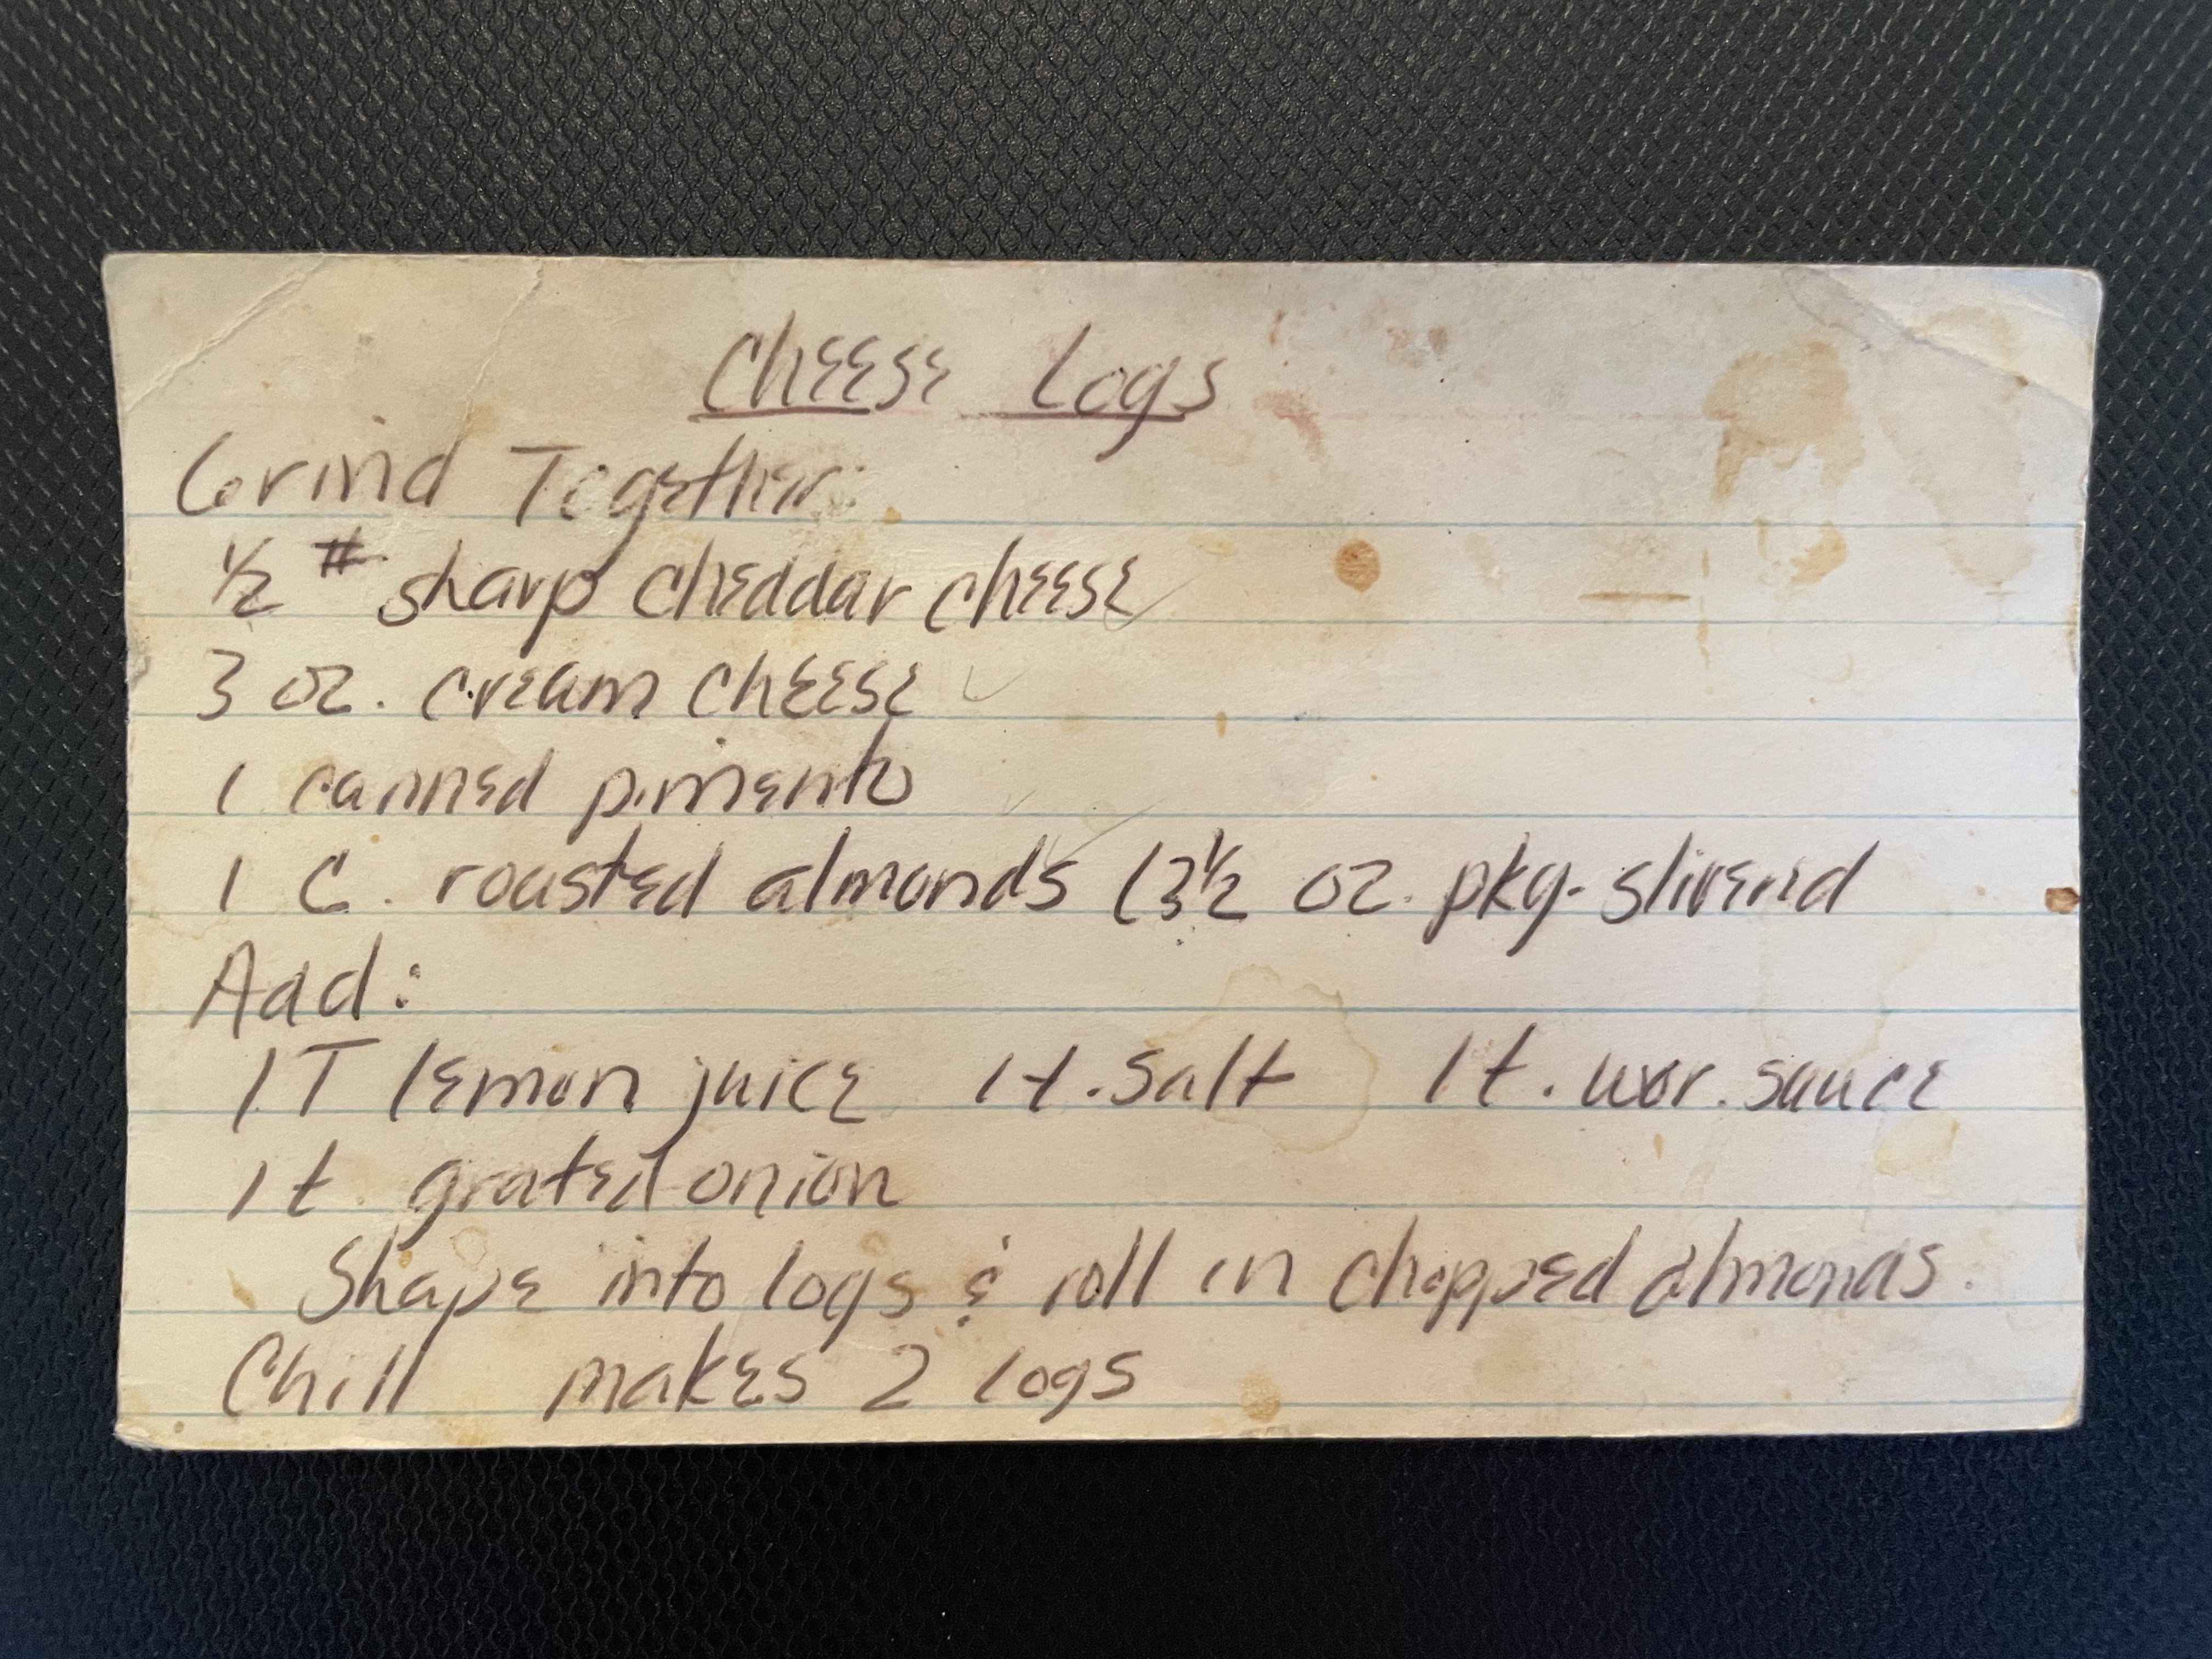 Cheese Logs
Grind Together:
1/2 # sharp cheddar cheese
3 oz. cream cheese
1 canned pimento
1 C. roasted almonds (3 1/2 oz. pkg. sliverd
Add:
1 T lemon juice 1 t. salt 1 t. wor. sauce
1 t. grated onion
Shape into logs & roll in chopped almonds.
Chill makes 2 logs